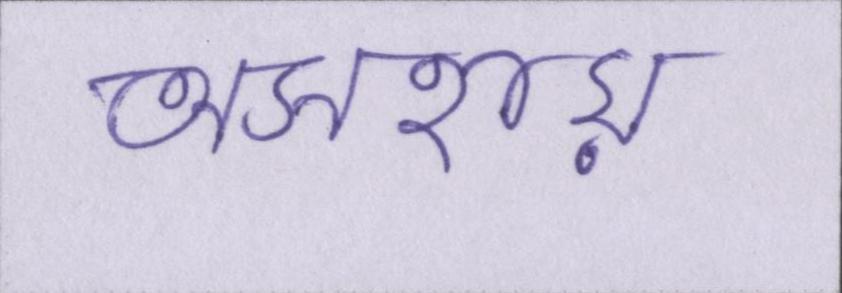 অসহায়